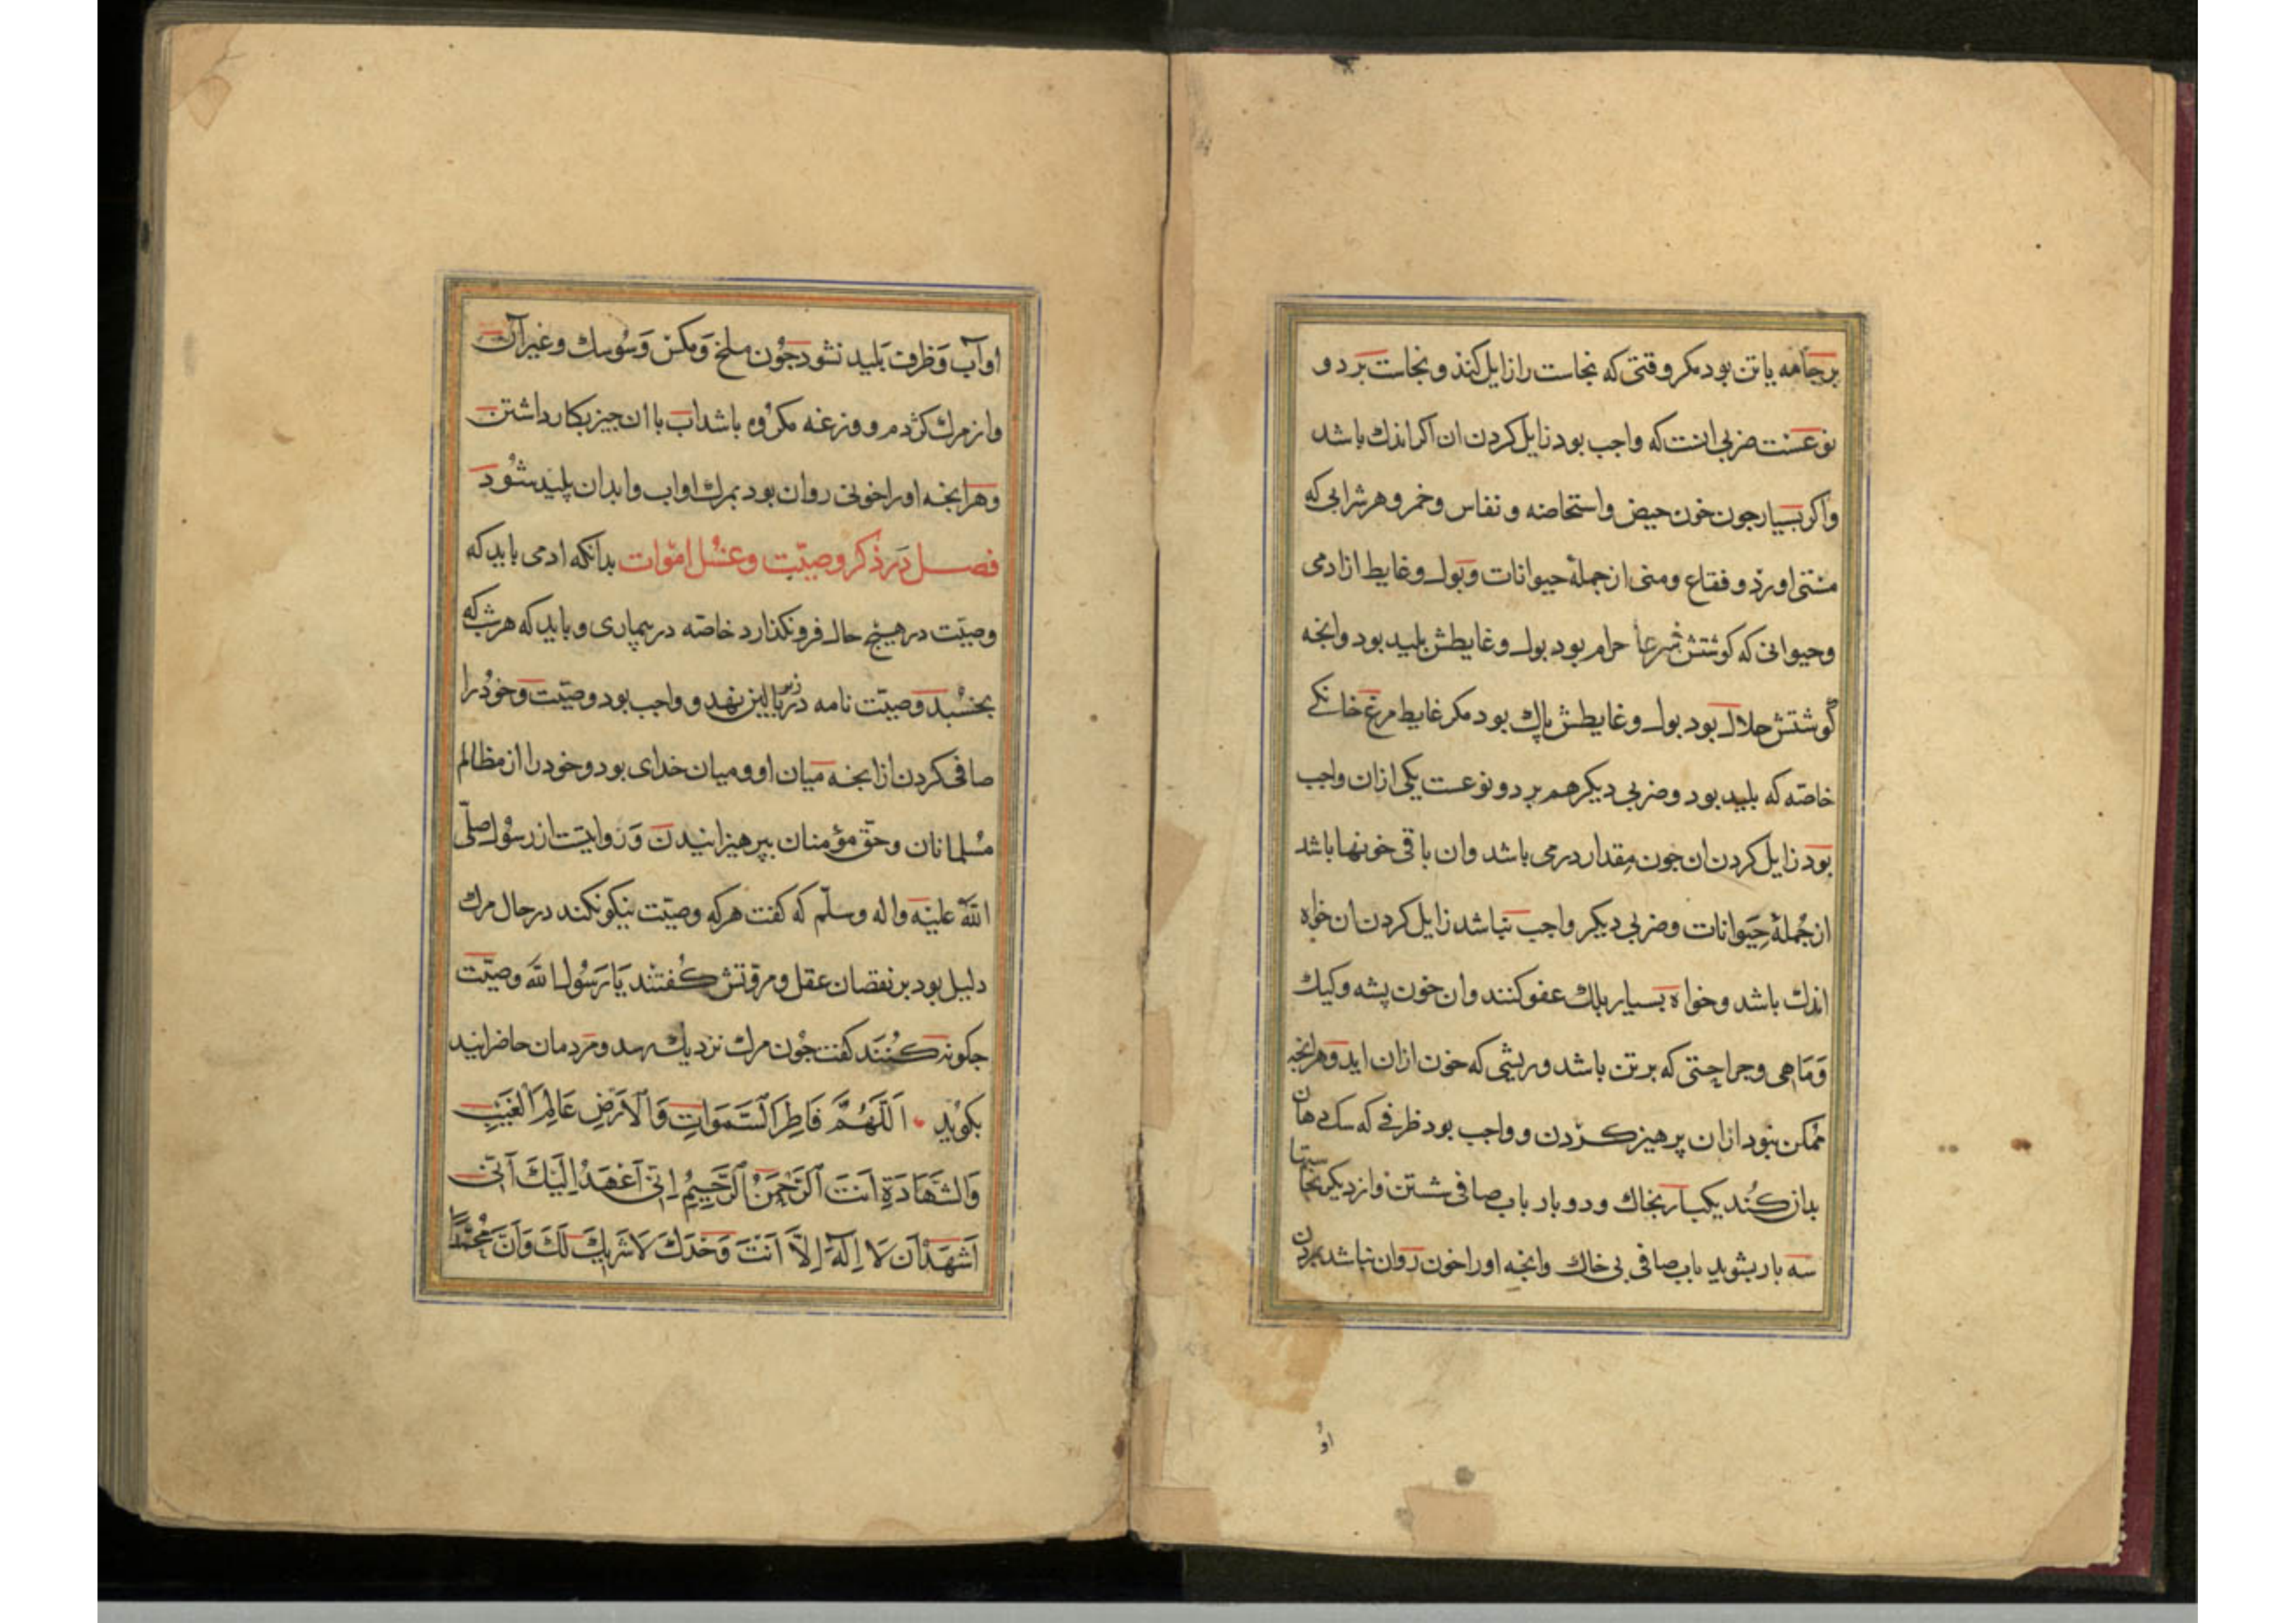 برجامه یا تن بود مکر وقتی که نجاست را زایل کنذ و نجاست بر دو
نوعست ضربی انست که واجب بود زایل کردن ان اکر اندك باشد
واکر بسیار جون خون حیض واستحاضه و نفاس وخمر و هر شرابی که
مستی اورذ و فقاع ومنی از جملهٔ حیوانات وبول وغایط از ادمی
وحیوانی که کوشتش شرعا حرام بود بول وغایطش بلید بود وانجه
گوشتش حلال بود بول وغایطش پاك بود مکر غایط مرغ خانکے
خاصّه که بلید بود وضربی دیکر هم بر دو نوعست یکی ازان واجب
بود زایل کردن ان جون مقدار درمی باشد وان باقی خونها باشد
از جُملهٔ حَیَوانات وضربی دیکر واجب نباشد زایل کردن ان خواه
اندك باشد وخواه بسیار بلك عفو کنند وان خون پشه وکیك
وَمَاهی وجراحتی که بر تن باشد وریشی که خون ازان اید وهرانجه
ممکن نبود ازان پرهیز کردن و واجب بود ظرفے که سك دهان
بدان کُند یکبار بخاك ودو بار باب صافی شستن واز دیکر نجاستها
سه بار بشوید باب صافی بی خاك وانجه اورا خون روان نباشد بمردن
اوُ
او آب وَظرف بَلید نشود جُون ملخ وَمکس وَسُوسك وغیر آن
واز مرك کژدم و وزغه مکرُوه باشد اب با ان جیز بکار داشتن
وهرانجه اورا خونی روان بود بمرك او اب وابدان پلید شُود
فصل دَر ذکر وصیّت وغسُل امَوات بدانکه ادمی باید که
وصیّت در هیچ حال فرونکذارد خاصّه در بیماری وباید که هر شب که
بخسُبد وصیّت نامه در زیر بالین نهد و واجب بود وصیّت وخوُد را
صافی کردن از انجه میان او ومیان خدای بود وخود را از مظالم
مُسلمانان وحقّ مؤمنان بپرهیزانیدن وَ روایَت از رسوُل صلّی
اللّٰه علیْه واله وسلّم که کفت هرکه وصیّت نیکو نکند در حال مرك
دلیل بود بر نقصان عقل و مروّتش کُفتند یَا رَسُول اللّٰه وصیّت
جکونه کُنَند کفت جُون مرك نزدیك رسد ومَردمان حاضر ایند
بکوید اَللّٰهُمَّ فَاطِرَ السَّمَوَاتِ وَالْاَرْضِ عَالِمَ الْغَیْبِ
وَالشَّهَادَةِ اَنتَ الرَّحْمَنُ الرَّحِیمُ اِنّی اَعْهَدُ اِلَیْكَ اَنّی
اَشهَدُ اَن لَا اِلَهَ اِلَّا اَنْتَ وَحْدَكَ لَا شَرِیكَ لَكَ وَاَنَّ مُحَمَّدًا